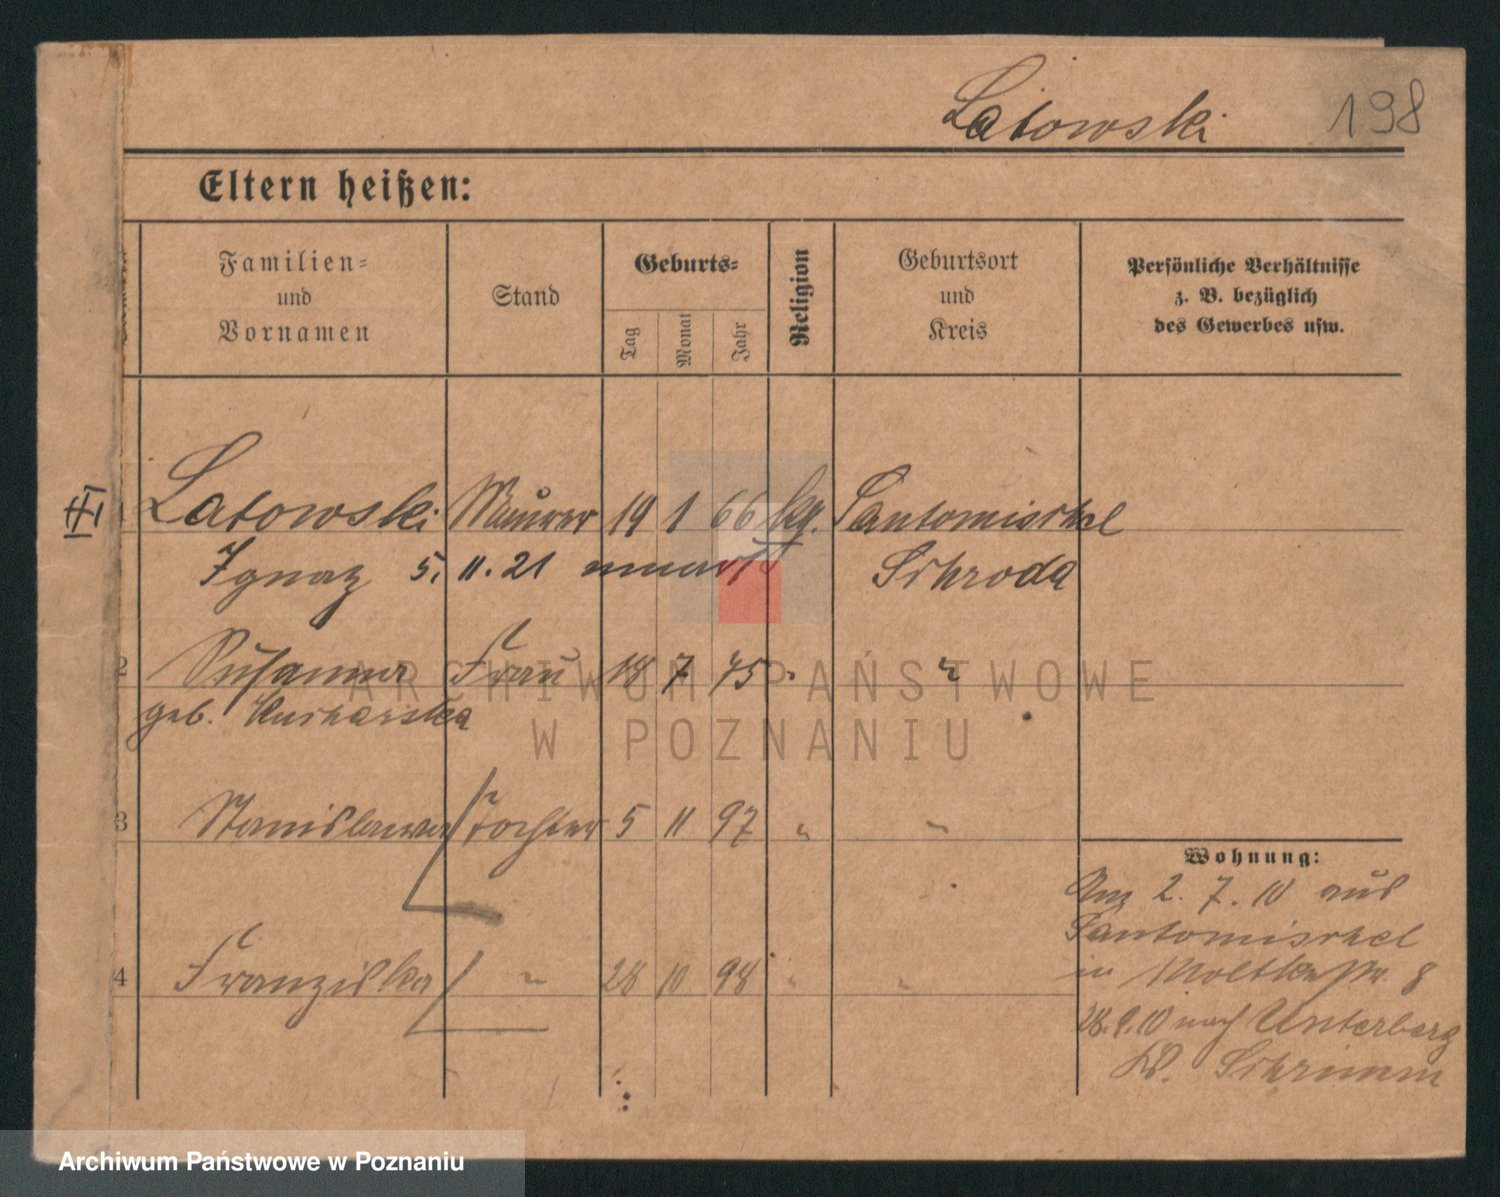 Latowski 198
Eltern heißen:
Familien=
und
Vornamen
Stand
Geburts=
Tag
Monat
Jahr
Religion
Geburtsort
und
Kreis
Persönliche Verhältnisse
z. B. bezüglich
des Gewerbes usw.
III 1 Latowski Maurer 19 1 66 kg. Santomischel
Ignaz 5. 11. 21 Schroda
2 Susanna Frau 18 7 75 " "
geb. Kucharska
3 Stanislawa Tochter 5 11 97 " "
4 Franziska " 28 10 98 " "
Wohnung:
Anz 2. 7. 10 aus
Santomischel
in Moltkestr. 8
28. 9. 10 nach Unterberg
Kr. Schrimm
ARCHIWUM PAŃSTWOWE
W POZNANIU
Archiwum Państwowe w Poznaniu